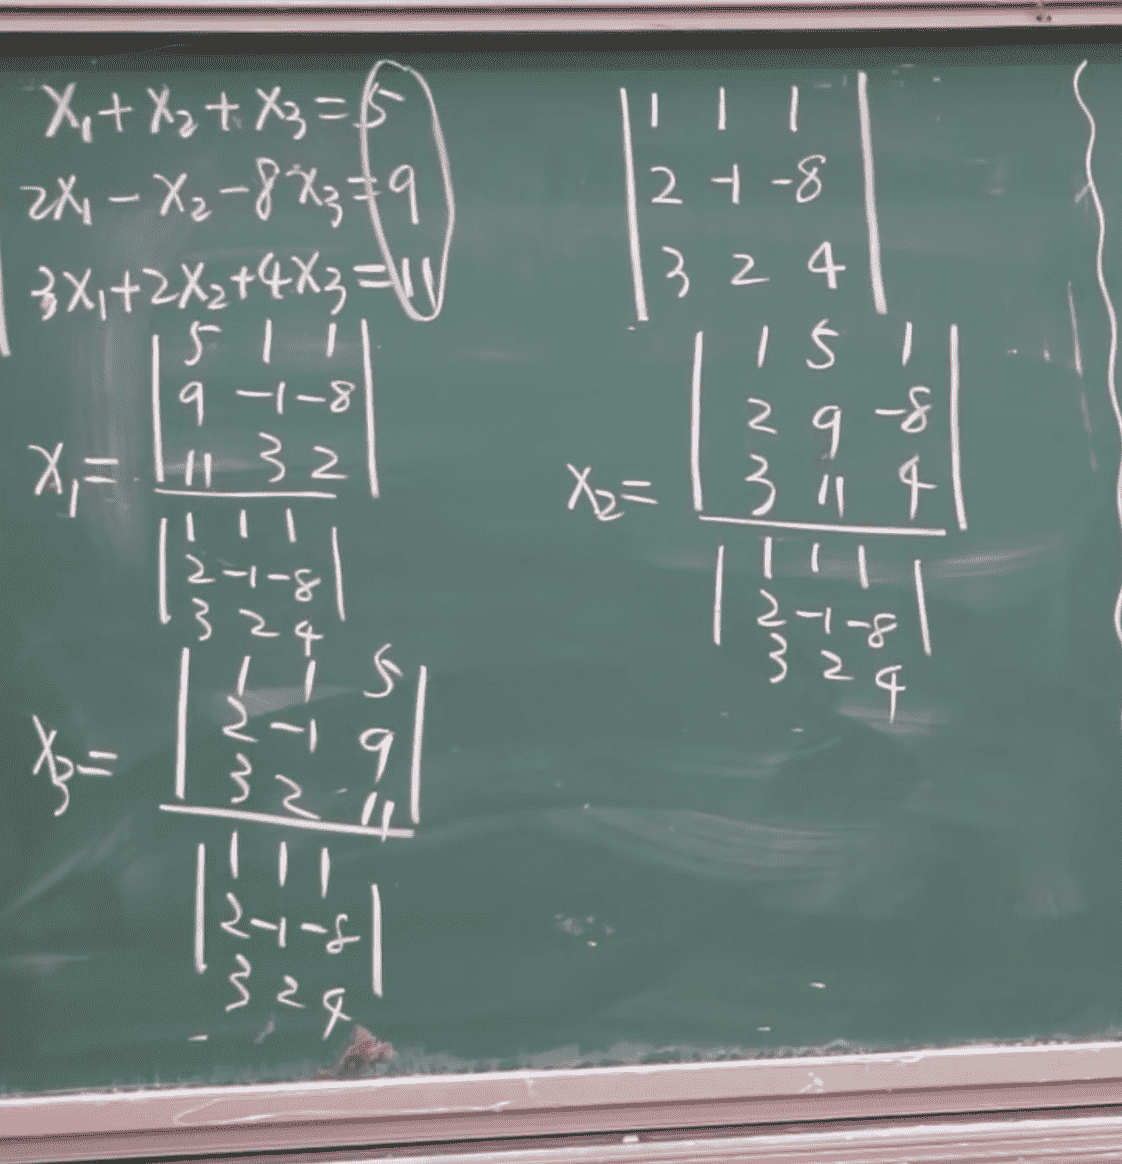 x₁+x₂+x₃=5
2x₁-x₂-8x₃=9
3x₁+2x₂+4x₃=11
| 1 1 1 |
| 2 -1 -8 |
| 3 2 4 |
x₁=
| 5 1 1 |
| 9 -1 -8 |
| 11 3 2 |
| 1 1 1 |
| 2 -1 -8 |
| 3 2 4 |
x₂=
| 1 5 1 |
| 2 9 -8 |
| 3 11 4 |
| 1 1 1 |
| 2 -1 -8 |
| 3 2 4 |
x₃=
| 1 1 5 |
| 2 -1 9 |
| 3 2 11 |
| 1 1 1 |
| 2 -1 -8 |
| 3 2 4 |